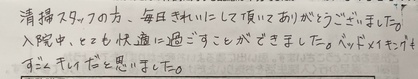 清掃スタッフの方、毎日きれいにして頂いてありがとうございました。
入院中、とても快適に過ごすことができました。ベッドメイキングも
すごくキレイだと思いました。